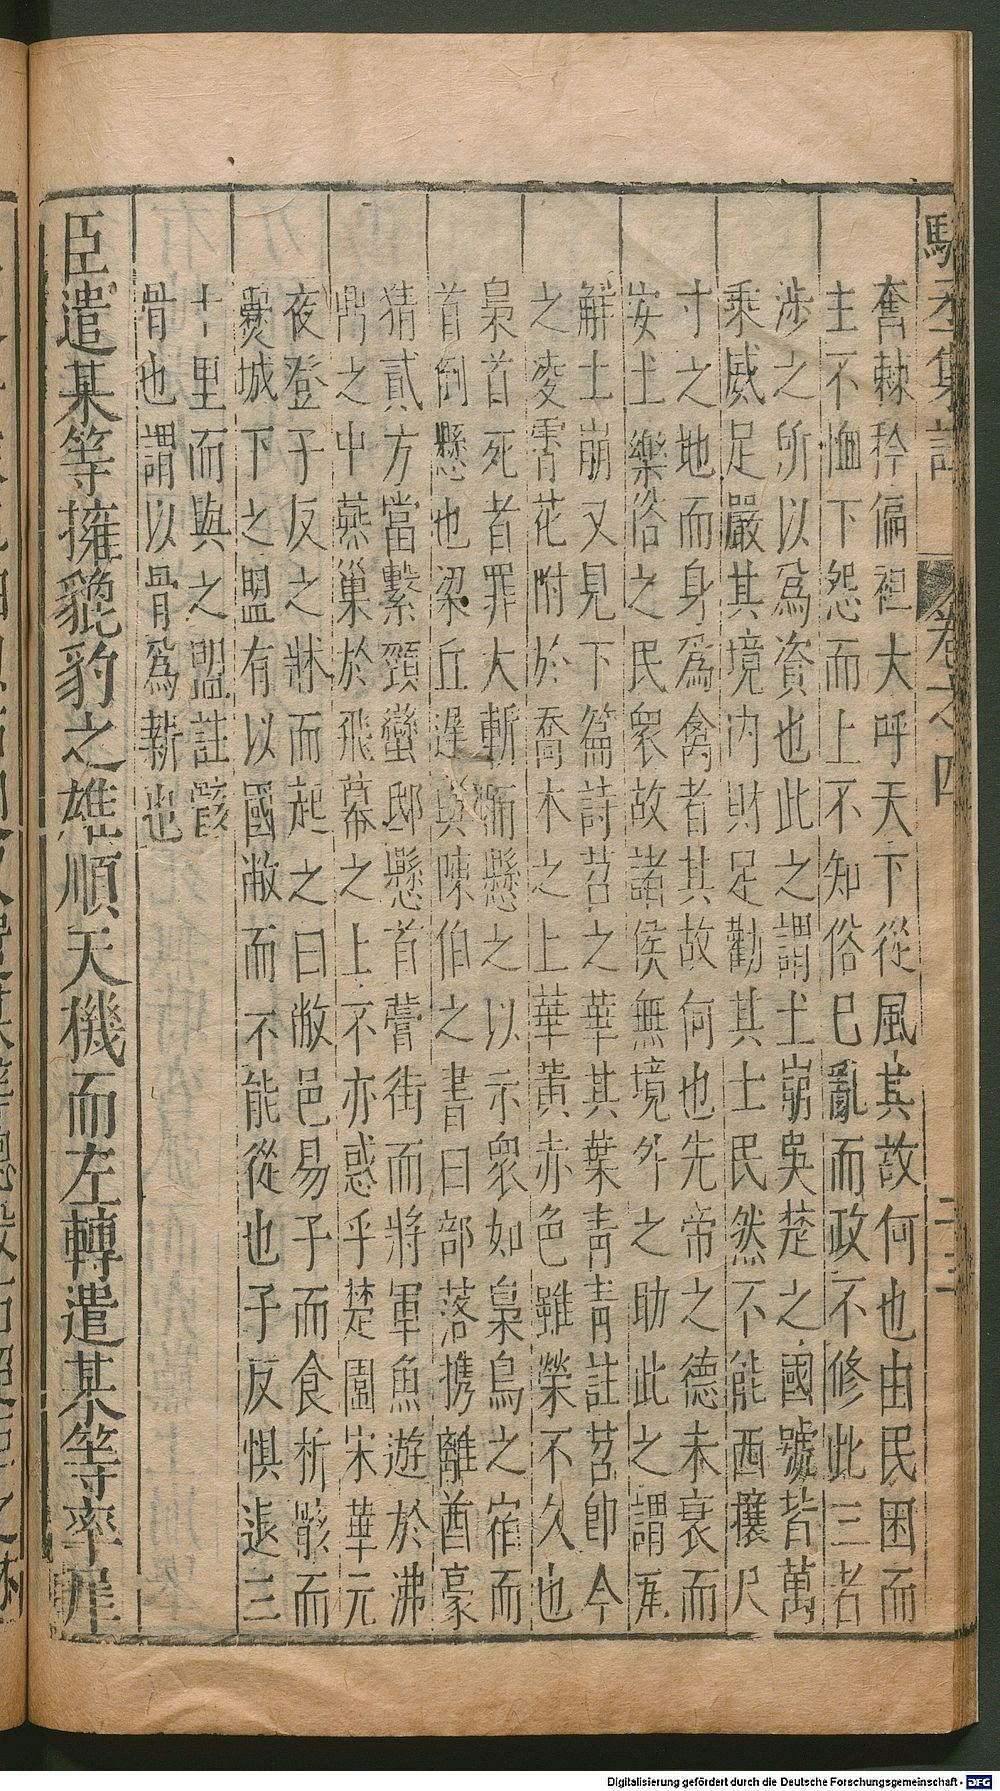 駱丞集註 卷之四
奮棘矜偏袒大呼天下從風其故何也由民困而
主不恤下怨而上不知俗巳亂而政不修此三者
渉之所以爲資也此之謂土崩吳楚之國號皆萬
乘威足嚴其境内財足勸其士民然不能西攘尺
寸之地而身爲禽者其故何也先帝之德未衰而
安土樂俗之民衆故諸侯無境外之助此之謂瓦
解土崩又見下篇詩苕之華其葉青青註苕卽今
之凌霄花附於喬木之上華黃赤色雖榮不久也
梟首死者罪大斬痛懸之以示衆如梟鳥之宿而
首倒懸也梁丘遲與陳伯之書曰部落携離酋豪
猜貳方當繫頸蠻邸懸首藁街而將軍魚遊於沸
鼎之中燕巢於飛幕之上不亦惑乎楚圍宋華元
夜登子反之牀而起之曰敝邑易子而食析骸而
爨城下之盟有以國敝而不能從也子反懼退三
十里而與之盟註骸
骨也謂以骨爲薪也
臣遣某等擁貔豹之雄順天機而左轉遣某等率